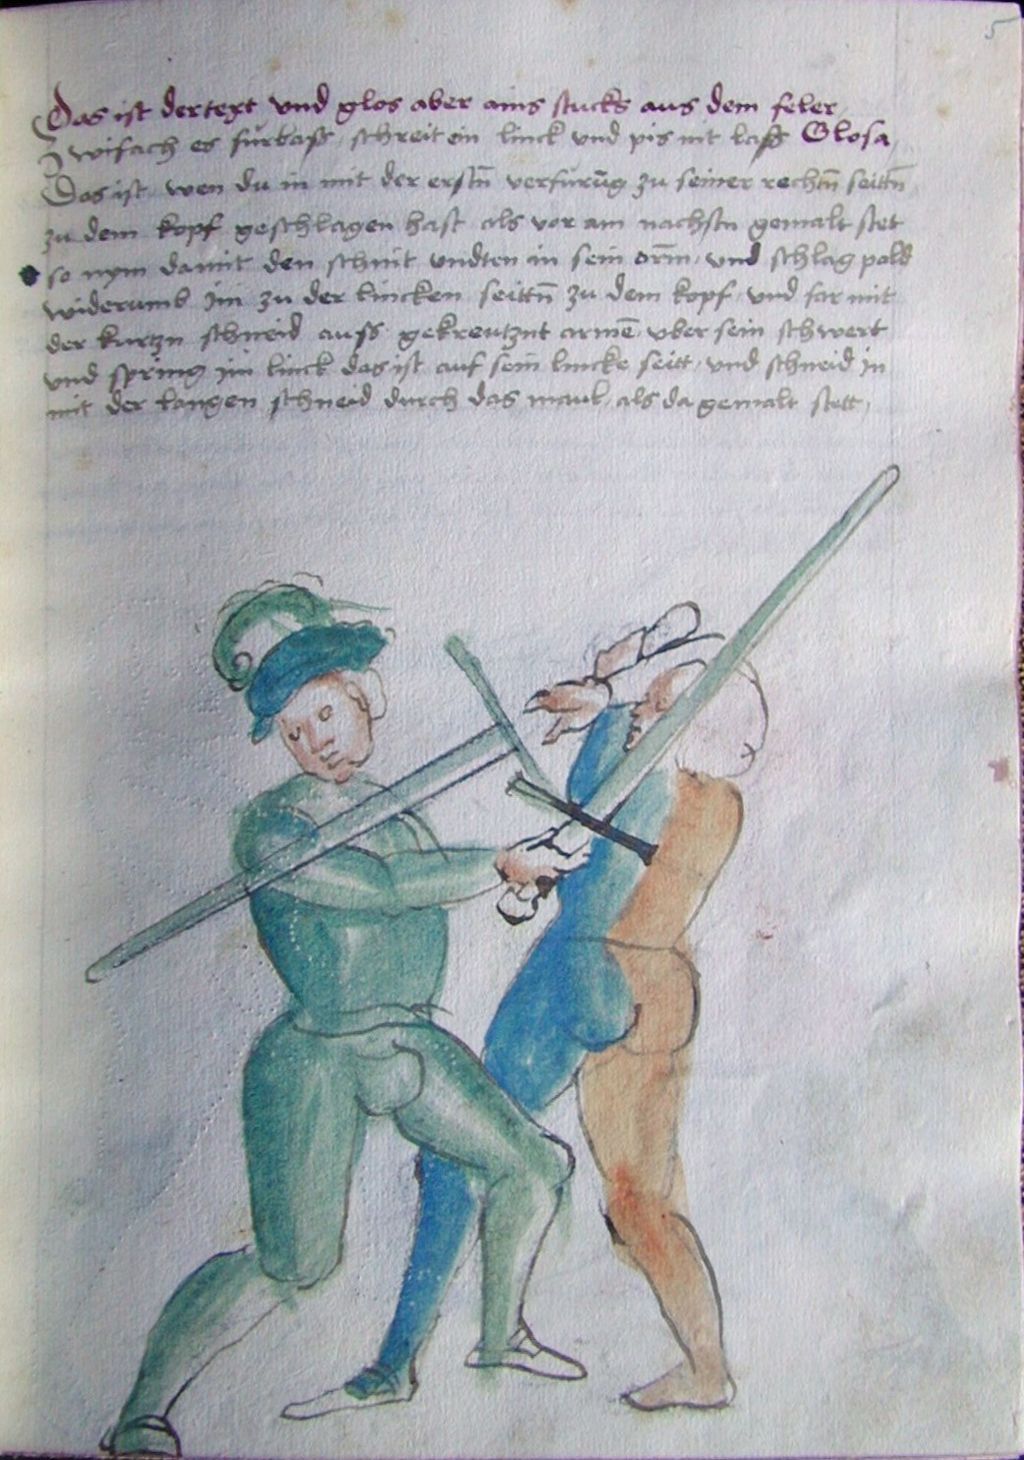 5
Das ist der text und glos aber ains stucks aus dem feler
Zwifach es furbass schreit ein linck und pis nit lass Glosa
Das ist wen du in mit der erstn̄ verfurūg zu seiner rechtn̄ seittn̄
zu dem kopf geschlagen hast als vor am nachstn gemalt stet
so nym damit den schnit undten in sein arm̄ und schlag pald
widerumb im zu der lincken seittn̄ zu dem kopf und far mit
der kurtzn schneid auss gekreutznt armē uber sein schwert
und spring im linck das ist auf sein lincke seitt und schneid in
mit der langen schneid durch das maul als da gemalt stett